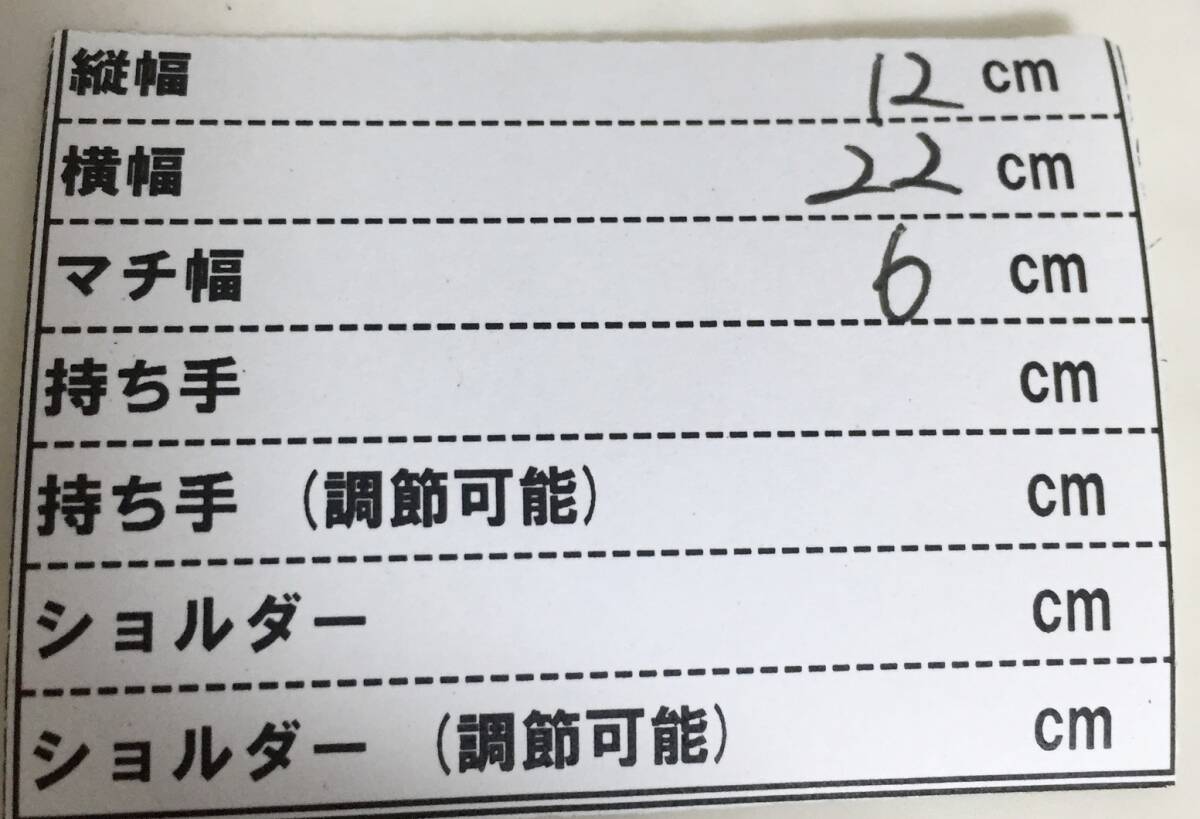 縦幅 12 cm
横幅 22 cm
マチ幅 6 cm
持ち手 cm
持ち手 (調節可能) cm
ショルダー cm
ショルダー (調節可能) cm